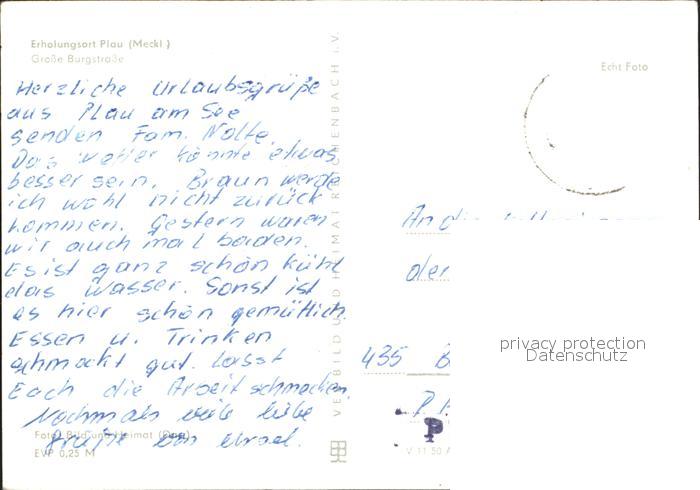 Erholungsort Plau (Meckl.)
Große Burgstraße
Herzliche Urlaubsgrüße
aus Plau am See
senden Fam. Nolte.
Das Wetter könnte etwas
besser sein. Braun werde
ich wohl nicht zurück
kommen. Gestern waren
wir auch mal baden.
Es ist ganz schön kühl
das Wasser. Sonst ist
es hier schön gemütlich.
Essen u. Trinken
schmeckt gut. Lasst
Euch die Arbeit schmecken.
Nochmals viele liebe
Grüße von Ursel.
Foto: Bild und Heimat
EVP 0,25 M
VEB BILD UND HEIMAT REICHENBACH i. V.
Echt Foto
An die
der
435 B
P
V 11 50 A
privacy protection
Datenschutz